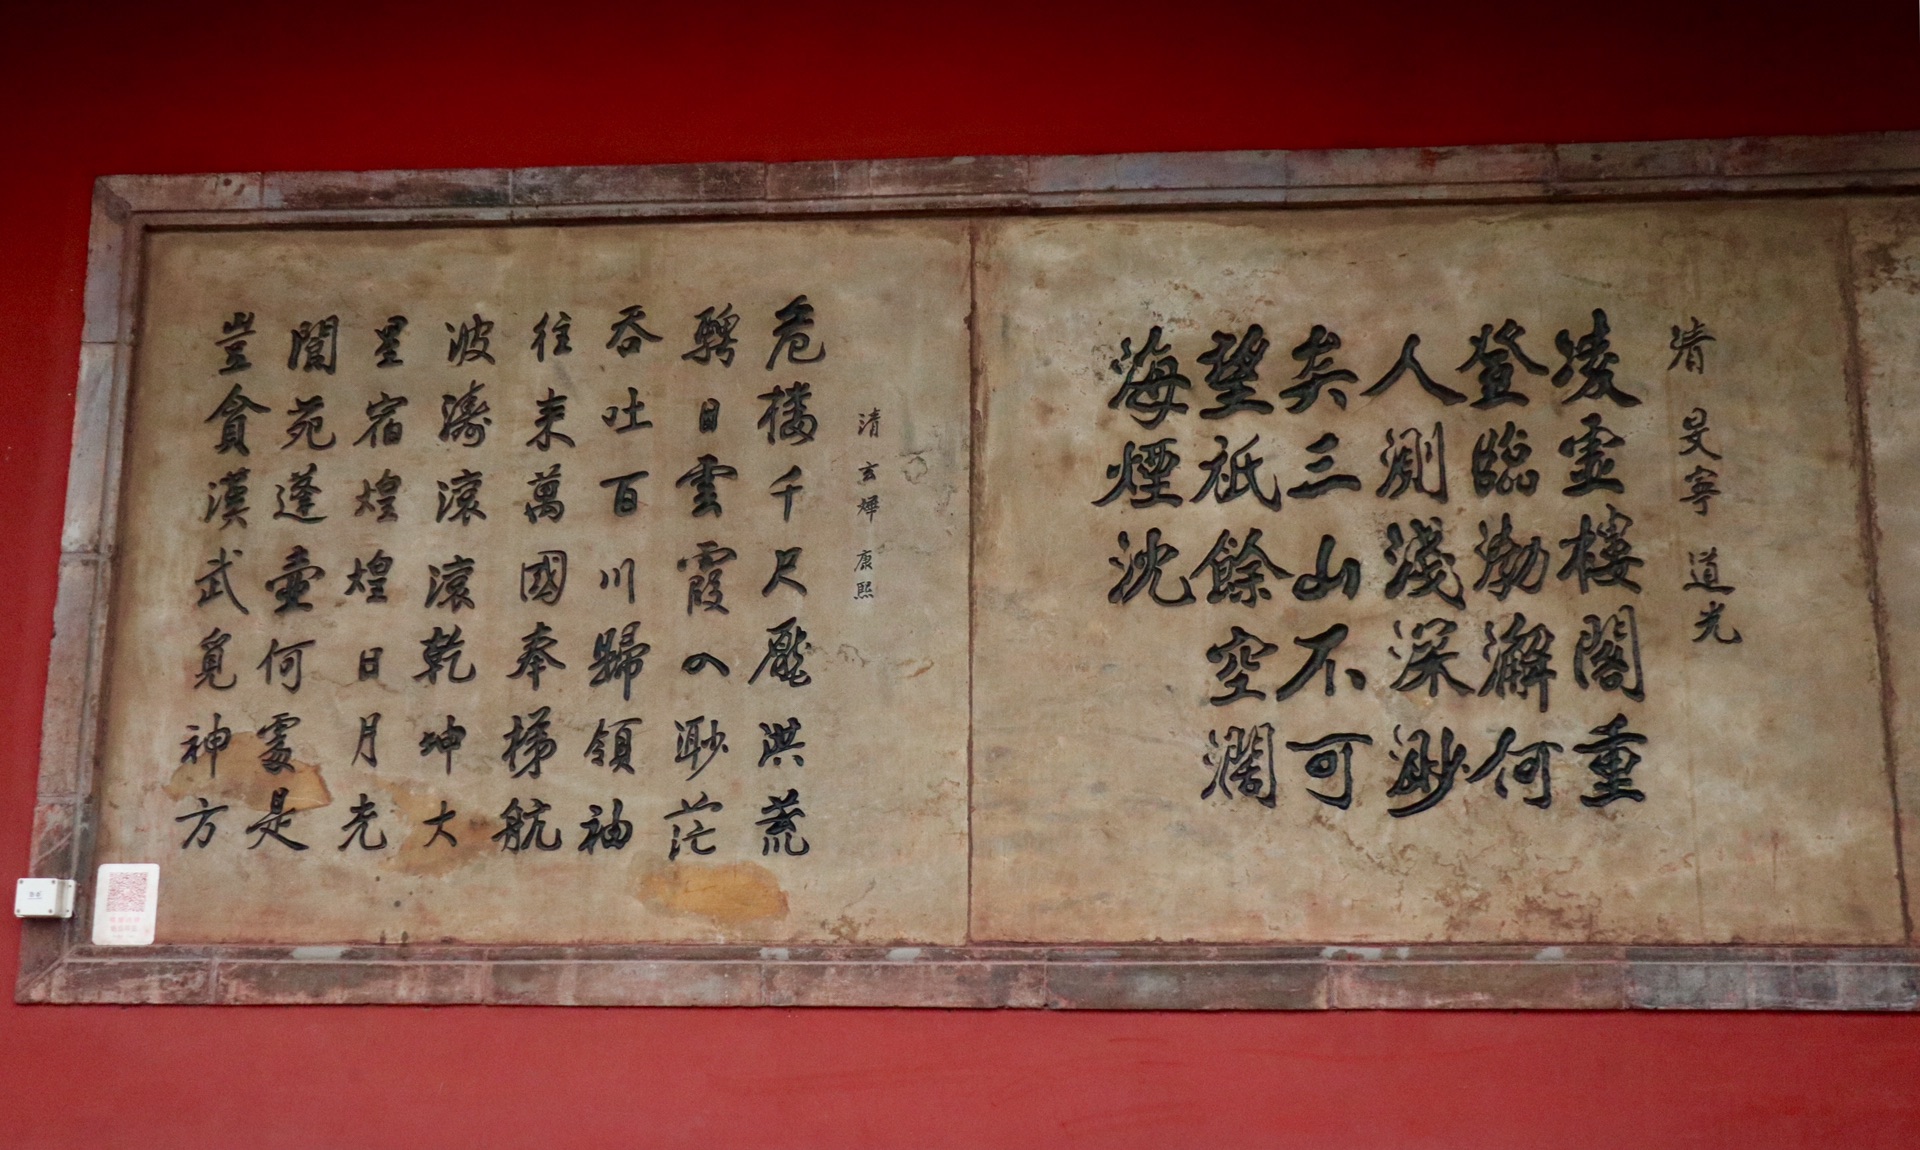 清 旻寧 道光
凌霊樓閣重
登臨渤澥何
人測淺深渺
矣三山不可
望祇餘空濶
海煙沈
清 玄燁 康熙
危楼千尺壓洪荒
騁目雲霞入渺茫
吞吐百川歸領袖
往来萬國奉梯航
波濤滾滾乾坤大
星宿煌煌日月光
閬苑蓬壷何處是
豈貪漢武覓神方